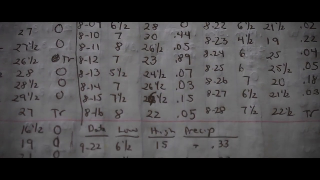 27 0 8-09 6½ 28 0 8-22 6½ 21½ .02
27½ 0 8-10 7 30 .44 8-23 4½ 19 .22
26½ Tr 8-11 8 26½ .05 8-24 6 25 .04
28 0 8-12 7 23 .89 8-25 6 25½ .05
28½ 0 8-13 5½ 24½ .07 8-26 7 20 .18
29½ 0 8-14 7 26½ .03 8-27 6½ 21½ .03
27 Tr 8-15 7½ .15 8-28 7½ 22½ Tr
8-16 8 22 .05
16½ 0 Date Low High Precip
19 0 9-22 6½ 15 - .33